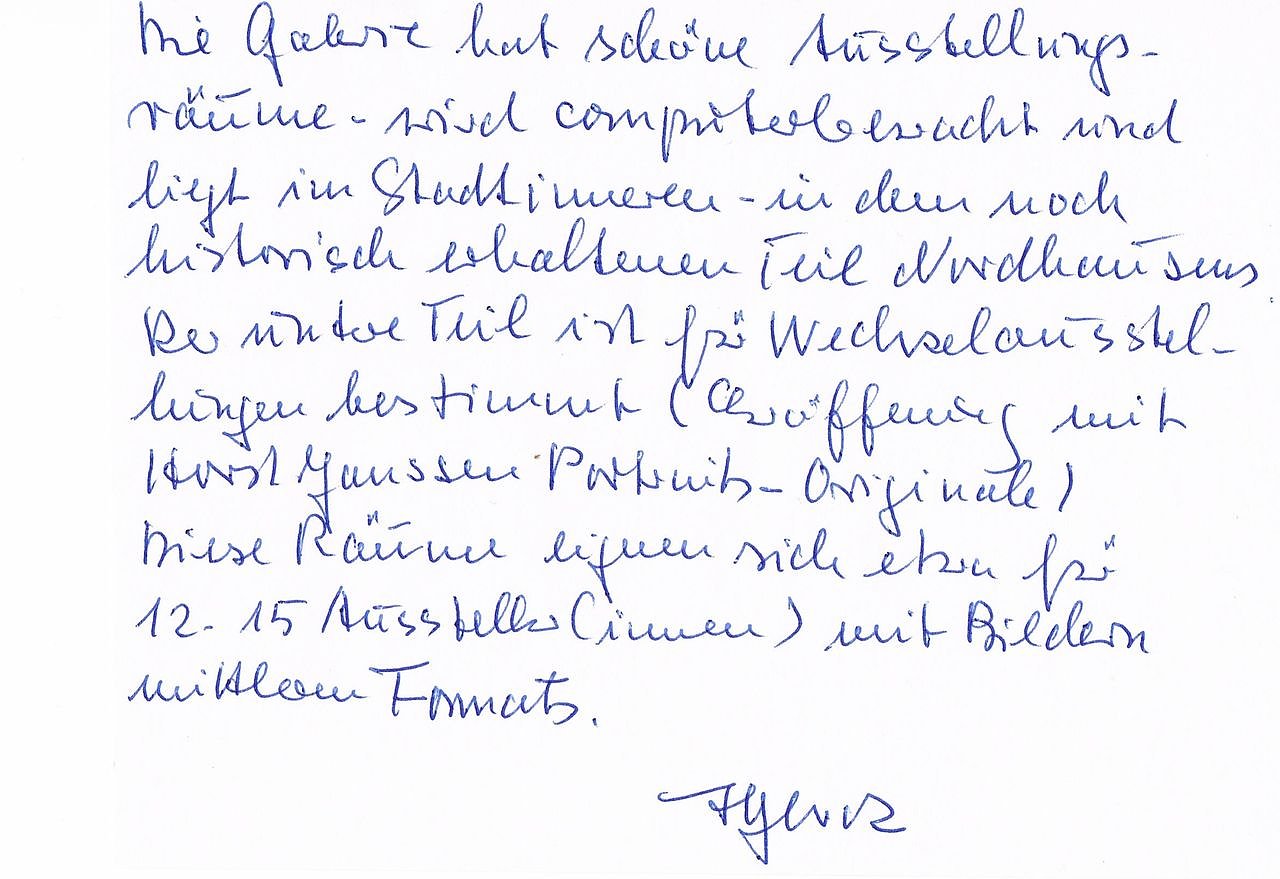 Die Galerie hat schöne Ausstellungs-
räume - wird computerbewacht und
liegt im Stadtinneren - in dem noch
historisch erhaltenen Teil Nordhausens
Der untere Teil ist für Wechselausstel-
lungen bestimmt (Eröffnung mit
Horst Janssen Portraits - Originale)
Diese Räume eignen sich etwa für
12 - 15 Aussteller(innen) mit Bildern
mittleren Formats.